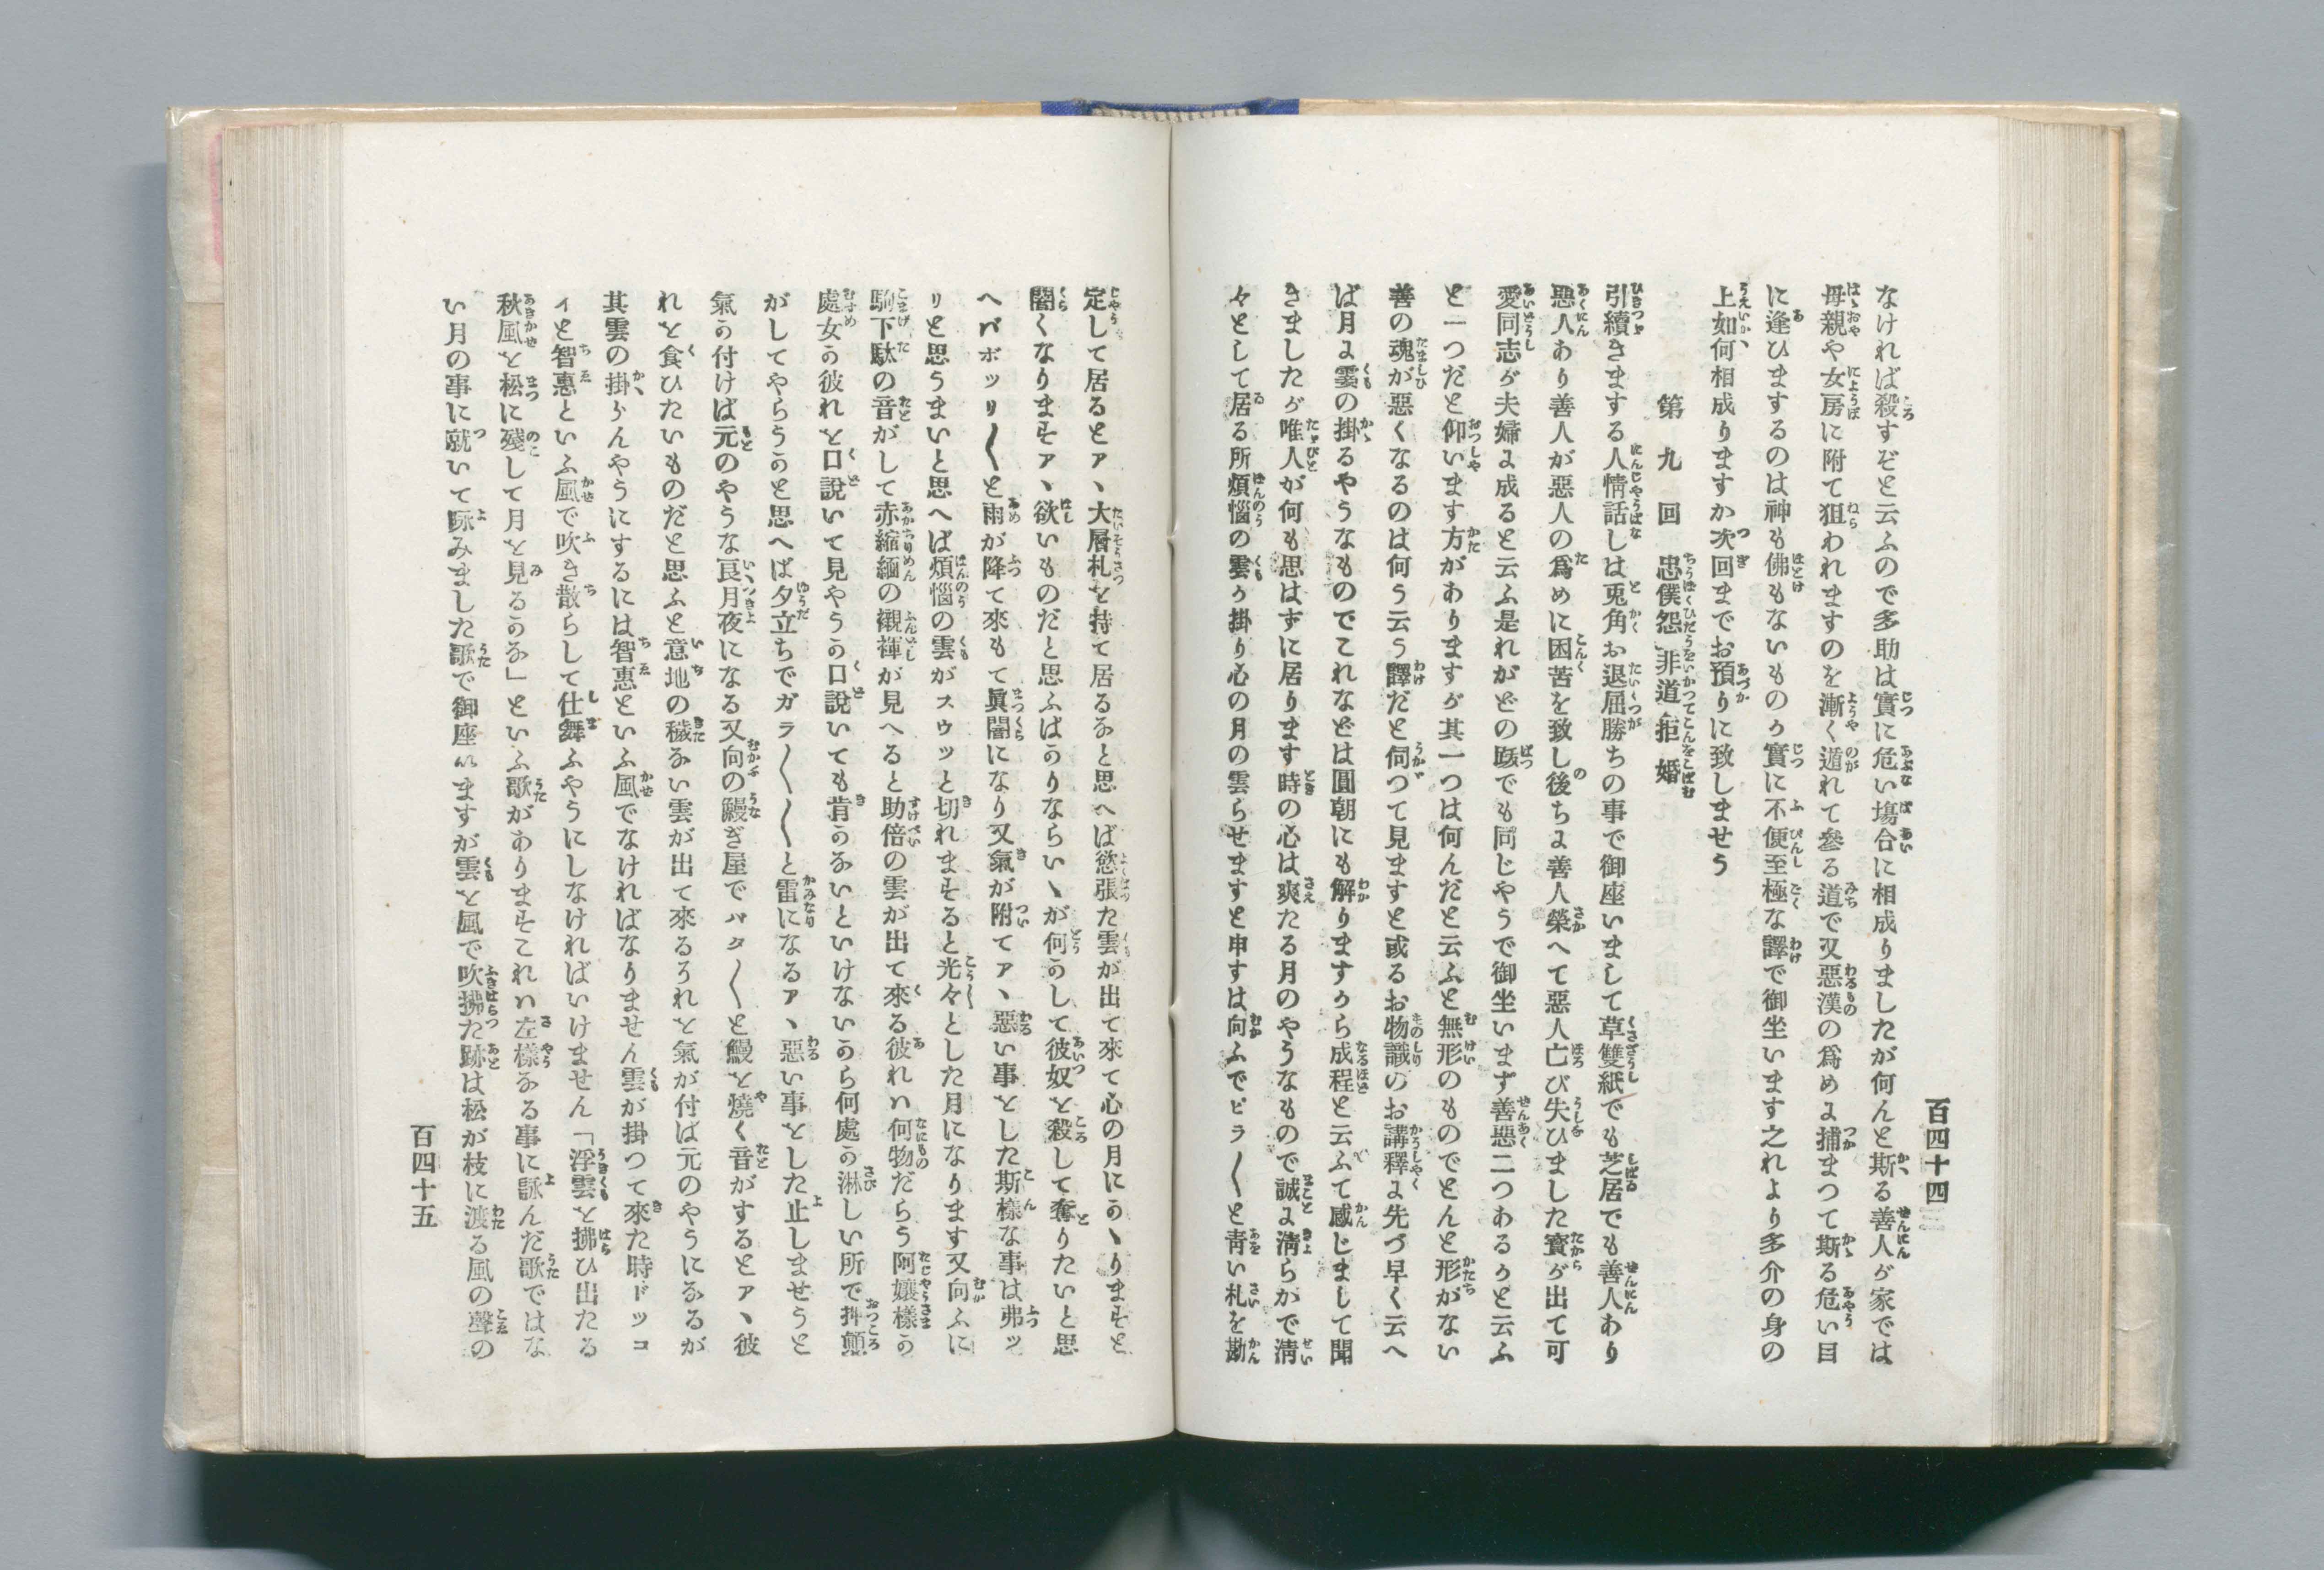 百四十四
なければ殺すぞと云ふので多助は實に危い塲合に相成りましたが何んと斯る善人が家では
母親や女房に附て狙われますのを漸く遁れて參る道で又惡漢の爲めに捕まつて斯る危い目
に逢ひまするのは神も佛もないものか實に不便至極な譯で御坐います之れより多介の身の
上如何相成りますか次回までお預りに致しませう
第九回 忠僕怨非道拒婚
引續きまする人情話しは兎角お退屈勝ちの事で御座いまして草雙紙でも芝居でも善人わり
惡人あり善人が惡人の爲めに困苦を致し後ちに善人榮へて惡人亡び失ひました寳が出て可
愛同志が夫婦に成ると云ふ是れがどの跋でも同じやうで御坐います善惡二つあるかと云ふ
と一つだと仰います方がありますが其一つは何んだと云ふと無形のものでとんと形がない
善の魂が惡くなるのは何う云う譯だと伺つて見ますと或るお物識のお講釋に先づ早く云へ
ば月に雲の掛るやうなものでこれなどは圓朝にも解りますから成程と云ふて感じまして聞
きましたが唯人が何も思はずに居ります時の心は爽たる月のやうなもので誠に淸らかで淸
々として居る所煩惱の雲か掛り心の月の雲らせますと申すは向ふでピラ〱と靑い札を勘
定して居るとアヽ大層札を持て居るなと思へば慾張た雲が出て來て心の月にかゝりますと
闇くなりますアヽ欲いものだと思ふばかりならいゝが何かして彼奴を殺して奪りたいと思
へバポツリ〱と雨が降て來もて眞闇になり又氣が附てアヽ惡い事をした斯樣な事は弗ツ
リと思うまいと思へば煩惱の雲がスウッと切れますると光々とした月になります又向ふに
駒下駄の音がして赤縮緬の襯褌が見へると助倍の雲が出て來る彼れハ何物だらう阿孃樣か
處女か彼れを口説いて見やうか口説いても肯かないといけないから何處か淋しい所で押顚
がしてやらうかと思へば夕立ちでガラ〱〱〱と雷になるアヽ惡い事をした止しませうと
氣か付けば元のやうな良月夜になる又向の鰻ぎ屋でバタ〱と鰻を燒く音がするとアヽ彼
れを食ひたいものだと思ふと意地の穢ない雲が出て來るそれを氣が付ば元のやうになるが
其雲の掛らんやうにするには智惠といふ風でなければなりません雲が掛つて來た時ドッコ
イと智惠といふ風で吹き散らして仕舞ふやうにしなければいけません「浮雲を拂ひ出たる
秋風を松に殘して月を見るかな」といふ歌がありますこれハ左樣なる事に詠んだ歌ではな
い月の事に就いて詠みました歌で御座いますが雲を風で吹拂た跡は松が枝に渡る風の聲の
百四十五